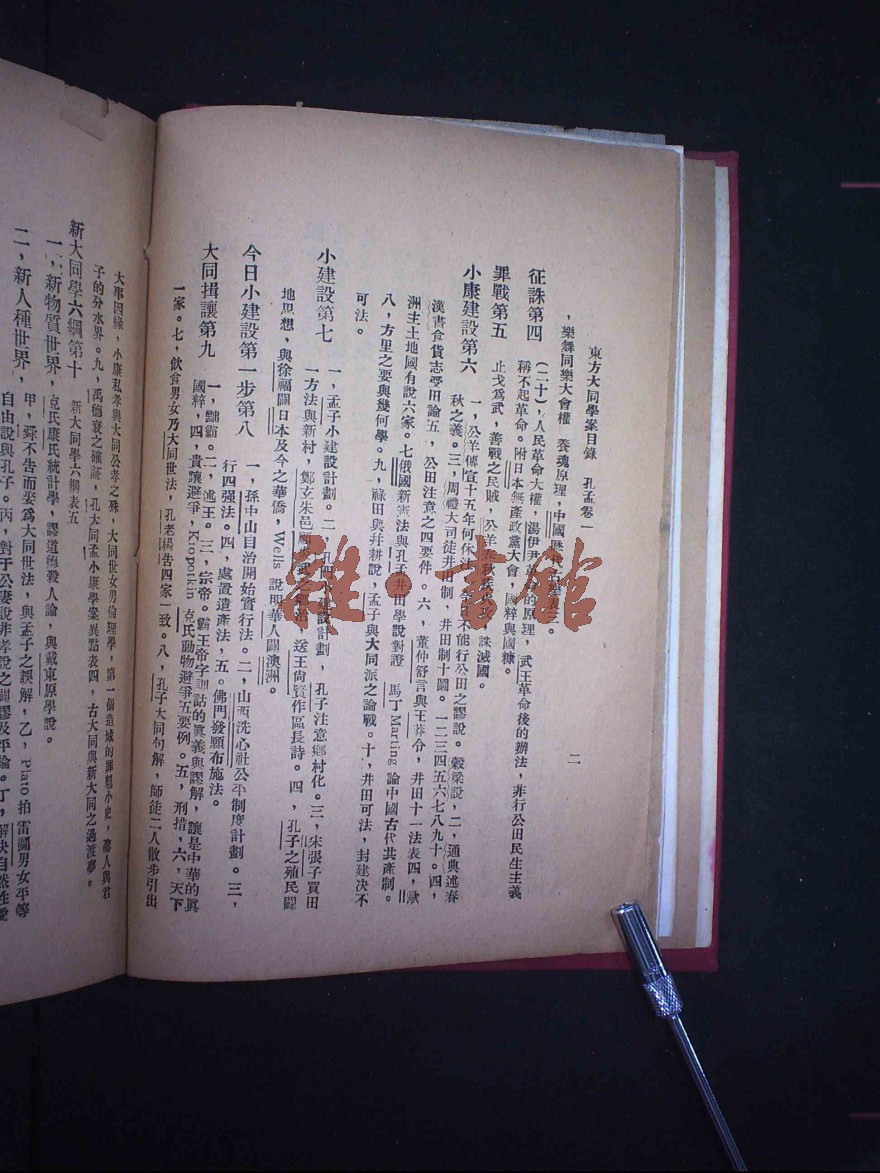 東方大同學案目錄　孔孟卷一
二
，樂舞同樂大會權　養魂原理，中國歷代
征誅第四　(二十)，人民革命大權，湯伊尹革命的原理，武王革命後的辦法，非行公田民生主義
稱不起革命。附日本無產政黨大會，國粹與國糠。
罪戰第五　止戈爲武，善戰之民賊，公羊　誅滅國。
小康建設第六　一，公羊傳宣十五年何休注　不能行公田之謬說。穀梁說，二，通典述春
秋之義。三，周禮大司徒井田制，井田制十圖。一二三四五六七八九十。四，
漢書食貨志受田論五，公田注意之四要件。六，董仲舒言與王莽令，井田十一法表四，歐
洲主土地國有說六家。七俄國新憲法與孔孟井田學說對證　馬丁Marting 論中國古代共產制。
八，方里之要與幾何學。九，祿田與幷耕說，孟子與大同派之論戰。十，井田可法，封建決不
可法。
小建設第七　一，孟子小建設計劃。二，孔門小建設計劃，孔子注意鄉村化。三，宋張子買田
一方法與新村，鄭玄朱邑　之鄉治，送王尙賢作區長詩。四，孔子之殖民闢
地思想，與徐福闢日本及今之華僑，Wells 說明華人闢澳洲。
今日小建設第一步第八　一，孫中山自治開始實行法。二，山西洗心社公平制度計劃。三，
行四强法。四，處置遺產法，五。佛門發願布施法。
大同揖讓第九　一，黜霸。二，述王。三，宗帝。霸王帝字訓詁的眞義與謬解，讓是中華的眞
國粹，四，貴讓避爭，Kropotkin 克氏動物避爭五要例。五，刑措，六，天下
一家。七，飲食男女乃大同世法，孔老楊告四家一致。八，孔子大同句解，師徒二人散步引出
大事因緣，小康私孝與大同公孝之殊，大同世女男倫理學，第一個造城的罪魁小史，寡人與君
子的分水界。九，禹德衰之確証，孔大同孟小康學案異點表四，古大同與新大同之過渡夢。
新大同學六綱第十　新大同學六綱表五
一，新物質世界，克氏康氏統計學，謬道德殺人論，與戴東原學說。
二，新人種世界，甲，舜不告而娶爲大同世法，與孟子之誤解，乙，Plato拍雷圖男女平等
自由說與孔子。丙，對于公妻說非孝說之闢謬及平論。丁，解決自然性愛